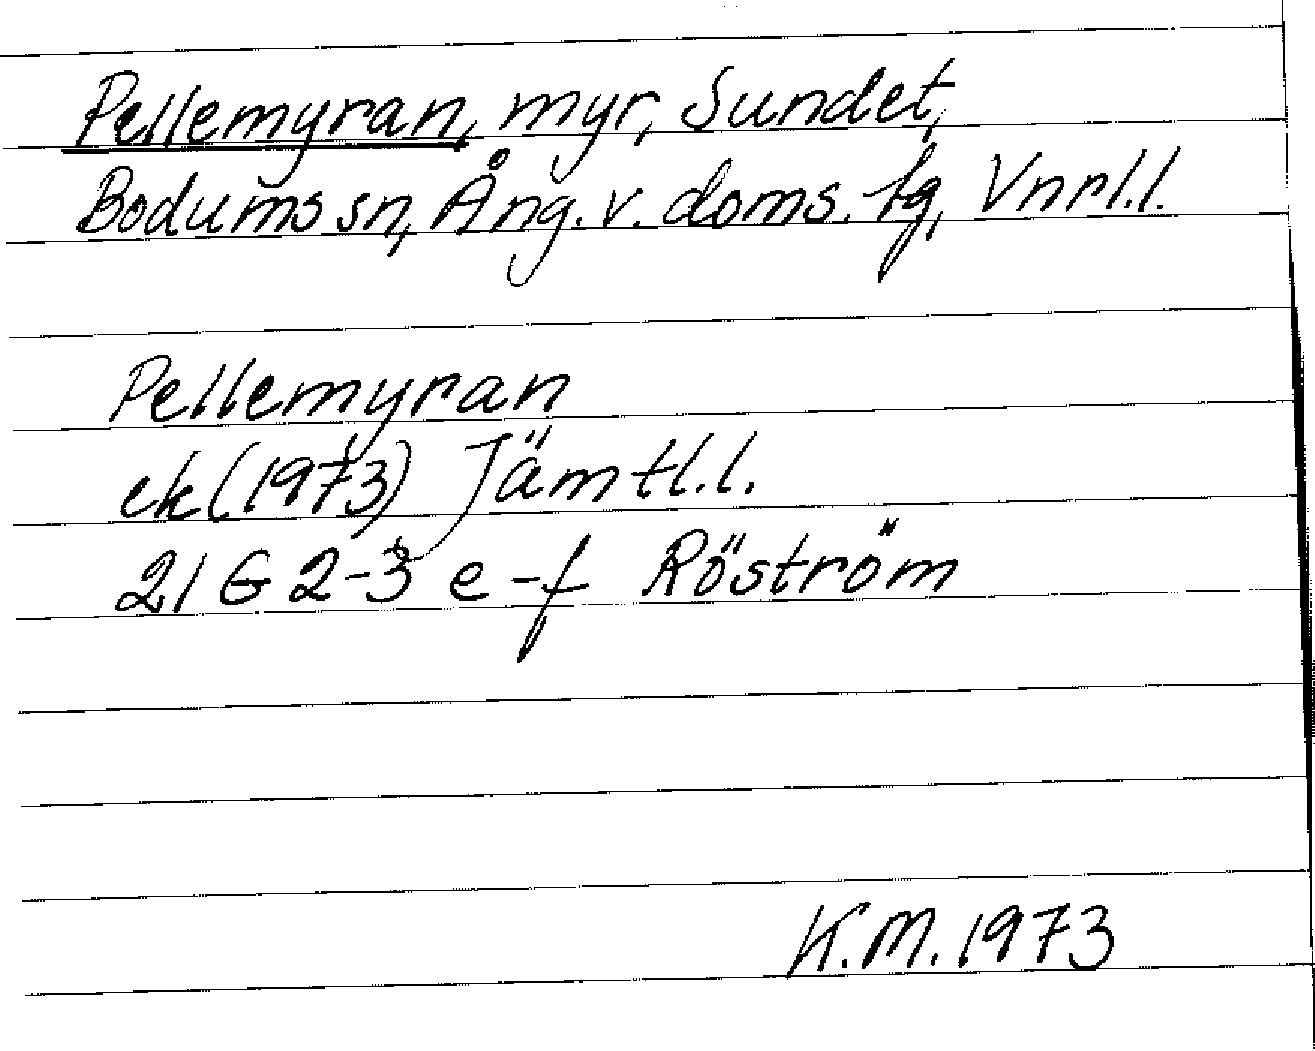 Pellemyran, myr, Sundet,
Bodums sn, Ång. v. doms. tg, Vnrl.l.
Pellemyran
ek (1973) Jämtl.l.
21 G 2-3 e-f Röström
K.M. 1973